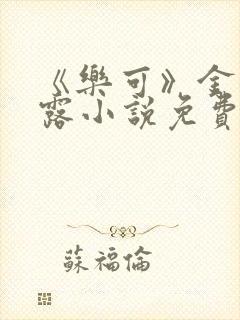 《樂可》金
露小說免費
蘇福倫